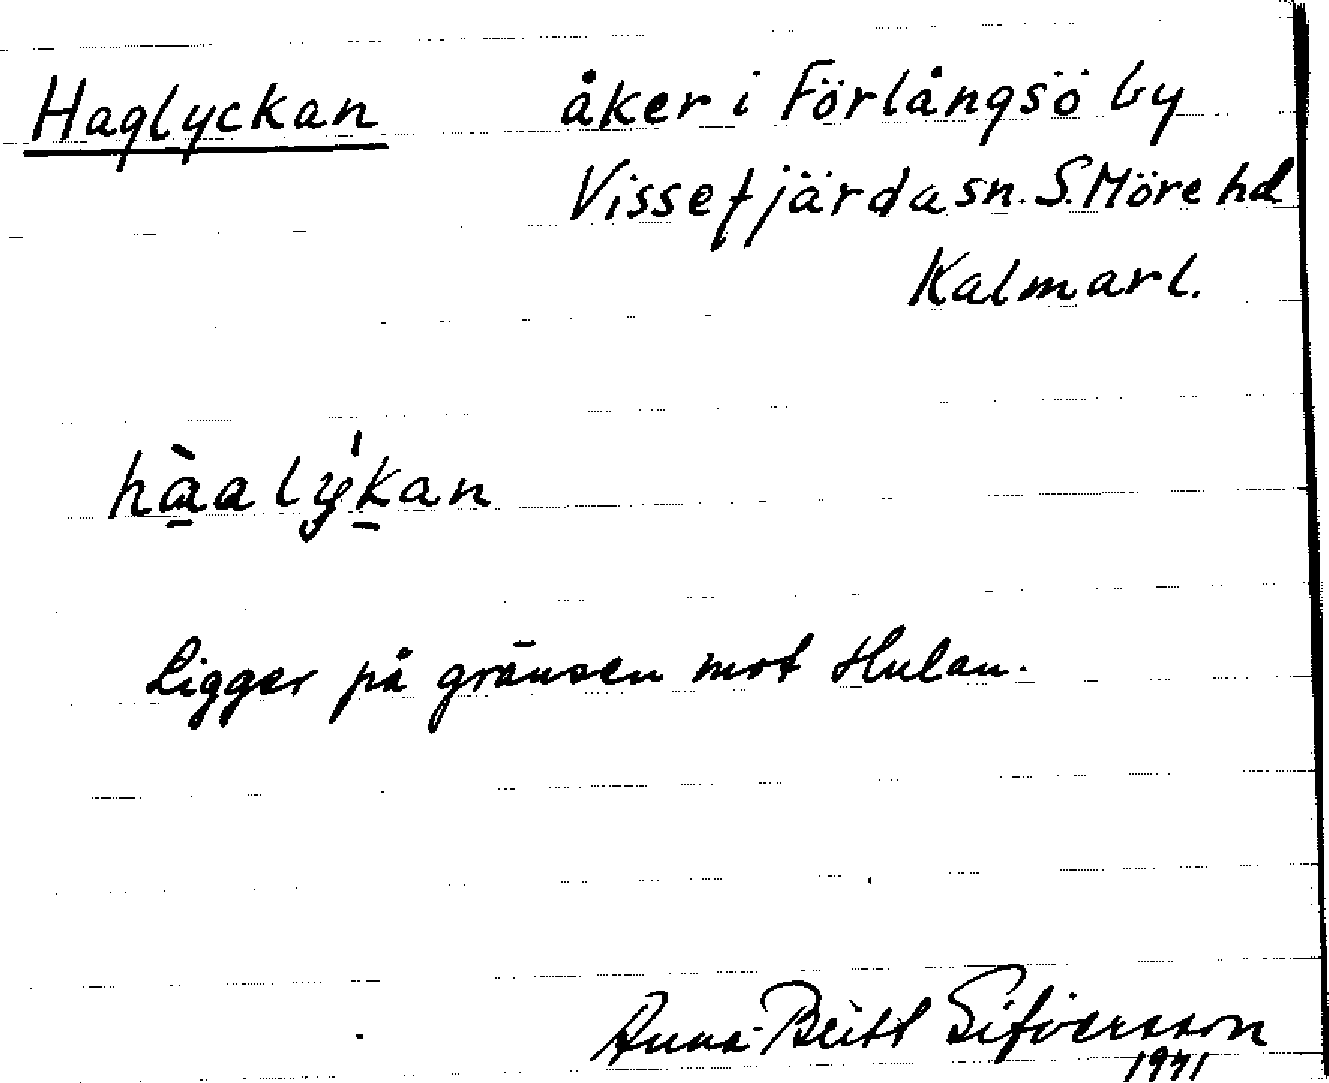 Haglyckan åker i Förlångsö by
Vissefjärda sn. S. Möre hd
Kalmar l.
hàalýkan
Ligger på gränsen mot Hulan.
Anna-Britt
1971